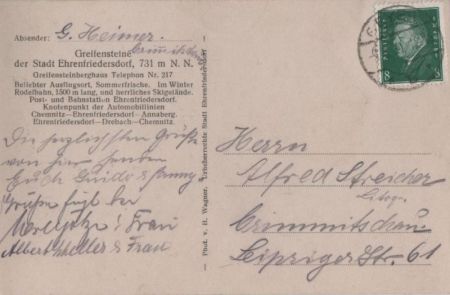 Absender: G. Heimer.
Crimmitschau
Greifensteine
der Stadt Ehrenfriedersdorf, 731 m N. N.
Greifensteinberghaus Telephon Nr. 217
Beliebter Ausflugsort, Sommerfrische. Im Winter
Rodelbahn, 1500 m lang, und herrliches Skigelände.
Post- und Bahnstation Ehrenfriedersdorf.
Knotenpunkt der Automobillinien
Chemnitz—Ehrenfriedersdorf—Annaberg.
Ehrenfriedersdorf—Drebach—Chemnitz.
Die herzlichsten Grüße
von hier senden
Euch Guido &
Grüße fügt bei
Frau
Albert & Frau
Phot. v. R. Wagner. Ehrenfriedersdorf
Herrn
Alfred Streicher
Litogr.
Crimmitschau
Leipziger Str. 61
8 8